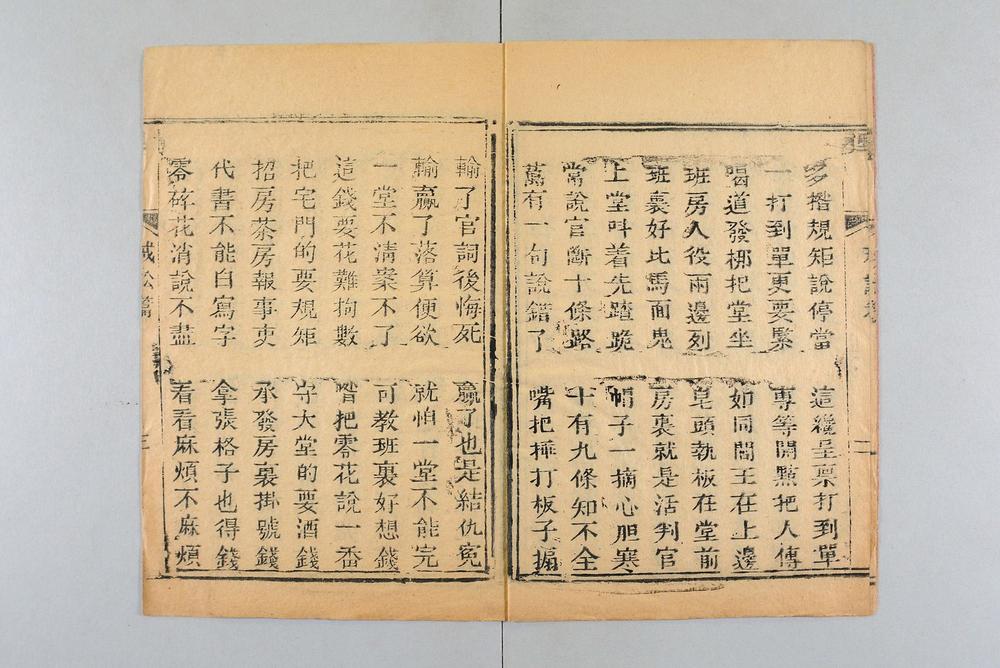 二
多撘規矩說停當　這纔呈禀打到單
一打到單更要緊　專等開點把人傳
喝道發梆把堂坐　如同閻王在上邊
班房人役兩邊列　皂頭執板在堂前
班裏好比馬面鬼　房裏就是活判官
上堂呌着先踏跪　帽子一摘心胆寒
常說官斷十條路　十有九條知不全
萬有一句說錯了　嘴把捶打板子搧
輸了官詞後悔死　贏了也是結仇寃
輸贏了落算便欲　就怕一堂不能完
一堂不清案不了　可教班裏好想錢
這錢要花難拘數　把零花說一番
把宅門的要規矩　守大堂的要酒錢
招房茶房報事吏　承發房裏掛號錢
代書不能白寫字　拿張格子也得錢
零碎花消說不盡　看看麻煩不麻煩
訟篇　三